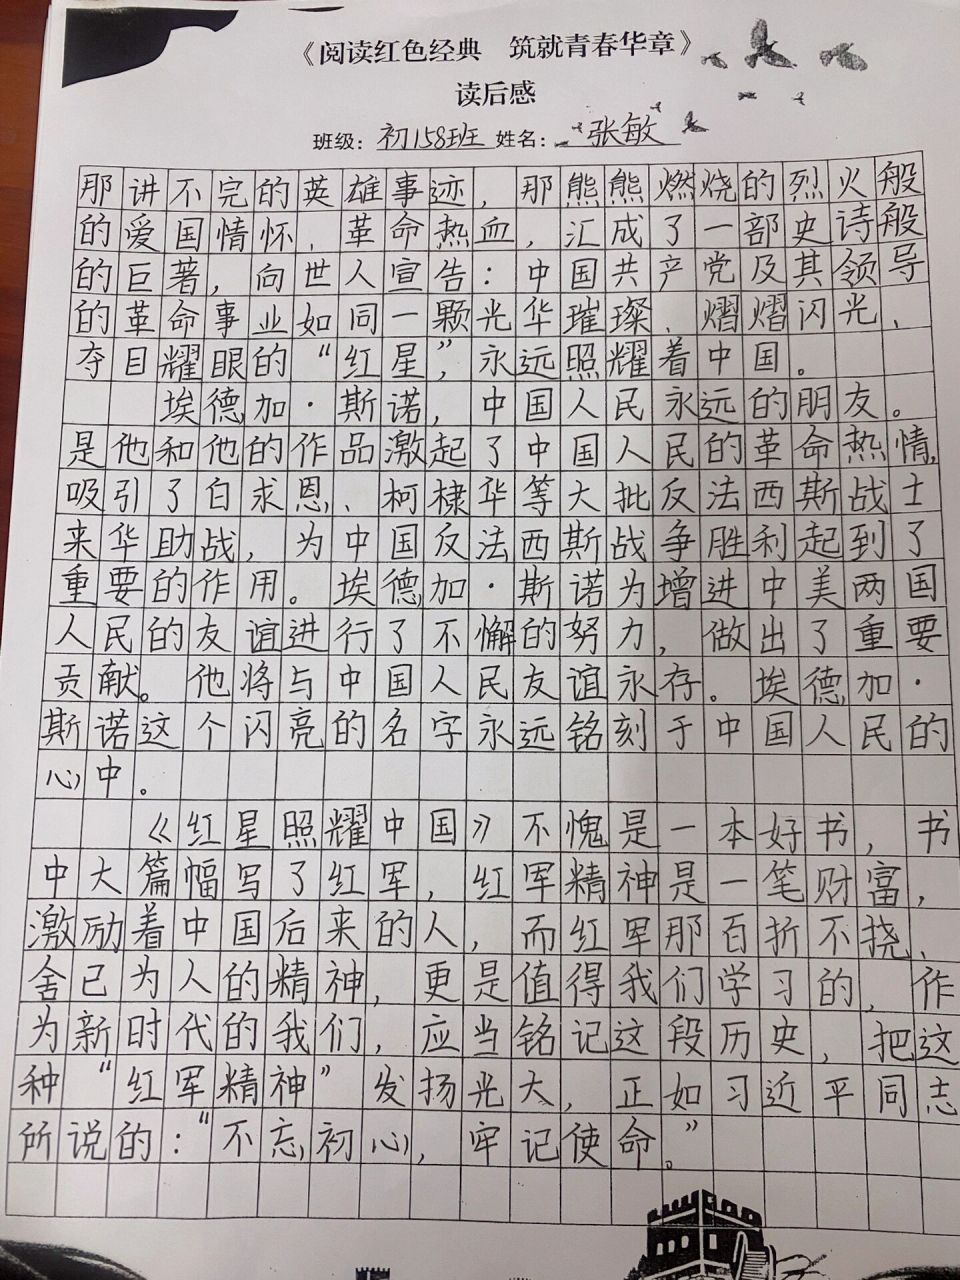 《阅读红色经典　筑就青春华章》
读后感
班级：初158班 姓名：张敏
那讲不完的英雄事迹，那熊熊燃烧的烈火般
的爱国情怀、革命热血，汇成了一部史诗般
的巨著，向世人宣告：中国共产党及其领导
的革命事业如同一颗光华璀璨、熠熠闪光、
夺目耀眼的“红星”，永远照耀着中国。
埃德加·斯诺，中国人民永远的朋友。
是他和他的作品激起了中国人民的革命热情，
吸引了白求恩、柯棣华等大批反法西斯战士
来华助战，为中国反法西斯战争胜利起到了
重要的作用。埃德加·斯诺为增进中美两国
人民的友谊进行了不懈的努力，做出了重要
贡献。他将与中国人民友谊永存。埃德加·
斯诺这个闪亮的名字永远铭刻于中国人民的
心中。
《红星照耀中国》不愧是一本好书，书
中大篇幅写了红军，红军精神是一笔财富，
激励着中国后来的人，而红军那百折不挠、
舍己为人的精神，更是值得我们学习的，作
为新时代的我们，应当铭记这段历史，把这
种“红军精神”发扬光大，正如习近平同志
所说的：“不忘初心，牢记使命。”